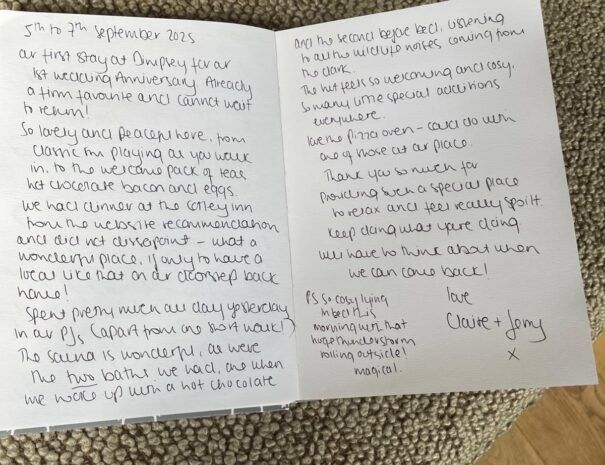 5th to 7th September 2025
our first stay at Dimpsey for our
1st wedding Anniversary. Already
a firm favourite and cannot wait
to return!
So lovely and peaceful here, from
Classic fm playing as you walk
in, to the welcome pack of teas
hot chocolate bacon and eggs.
We had dinner at the Cotley inn
from the website recommendation
and did not dissapoint - what a
wonderful place, if only to have a
local like that on our doorstep back
home!
Spent pretty much all day yesterday
in our PJs (apart from one short walk!)
The sauna is wonderful, as were
the two baths we had, one when
we woke up with a hot chocolate
and the second before bed, listening
to all the wildlife noises coming from
the dark.
The hut feels so welcoming and cosy,
so many little special additions
everywhere.
love the pizza oven - could do with
one of those at our place.
Thank you so much for
providing such a special place
to relax and feel really spoilt.
Keep doing what you're doing
we have to think about when
we can come back!
love
Claire + Jony
x
PS So cosy lying
in bed this
morning with that
huge thunderstorm
rolling outside!
magical.